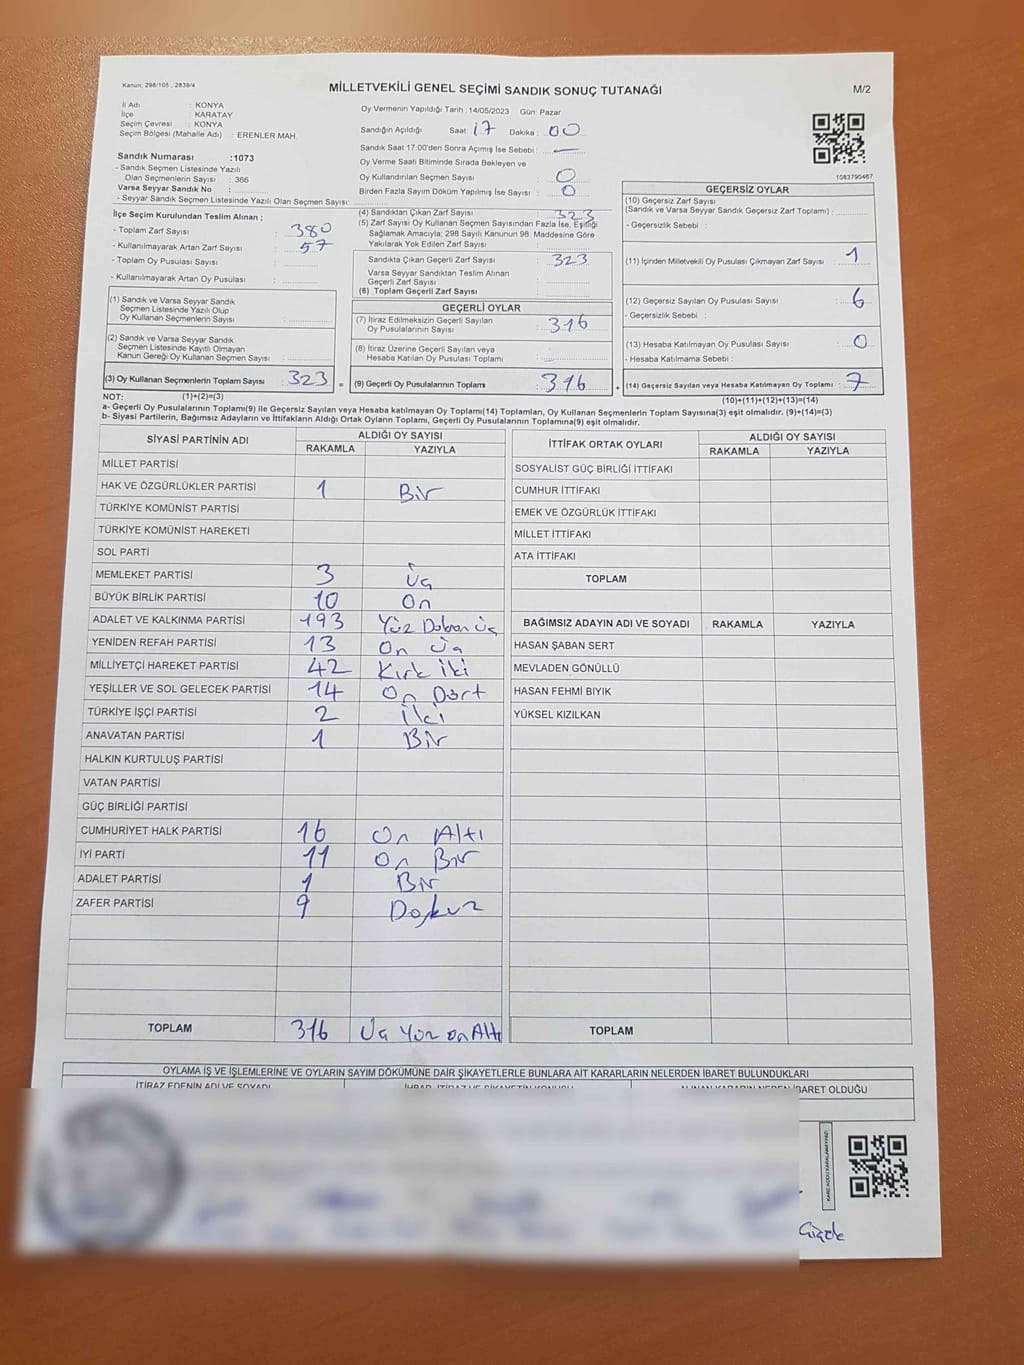 Kanun: 298/105 , 2839/4
MİLLETVEKİLİ GENEL SEÇİMİ SANDIK SONUÇ TUTANAĞI
M/2
İl Adı : KONYA
İlçe : KARATAY
Seçim Çevresi : KONYA
Seçim Bölgesi (Mahalle Adı) : ERENLER MAH.
Sandık Numarası :1073
- Sandık Seçmen Listesinde Yazılı
Olan Seçmenlerin Sayısı : 366
Varsa Seyyar Sandık No :
- Seyyar Sandık Seçmen Listesinde Yazılı Olan Seçmen Sayısı:
İlçe Seçim Kurulundan Teslim Alınan ;
- Toplam Zarf Sayısı : 380
- Kullanılmayarak Artan Zarf Sayısı : 57
- Toplam Oy Pusulası Sayısı :
- Kullanılmayarak Artan Oy Pusulası :
(1) Sandık ve Varsa Seyyar Sandık
Seçmen Listesinde Yazılı Olup
Oy Kullanan Seçmenlerin Sayısı :
(2) Sandık ve Varsa Seyyar Sandık
Seçmen Listesinde Kayıtlı Olmayan
Kanun Gereği Oy Kullanan Seçmen Sayısı :
(3) Oy Kullanan Seçmenlerin Toplam Sayısı : 323 =
Oy Vermenin Yapıldığı Tarih : 14/05/2023 Gün: Pazar
Sandığın Açıldığı Saat: 17 Dakika : 00
Sandık Saat 17:00'den Sonra Açımış İse Sebebi : —
Oy Verme Saati Bitiminde Sırada Bekleyen ve
Oy Kullandırılan Seçmen Sayısı : 0
Birden Fazla Sayım Döküm Yapılmış İse Sayısı : 0
(4) Sandıktan Çıkan Zarf Sayısı : 323
(5) Zarf Sayısı Oy Kullanan Seçmen Sayısından Fazla İse, Eşitliği
Sağlamak Amacıyla; 298 Sayılı Kanunun 98. Maddesine Göre
Yakılarak Yok Edilen Zarf Sayısı :
Sandıkta Çıkan Geçerli Zarf Sayısı : 323
Varsa Seyyar Sandıktan Teslim Alınan
Geçerli Zarf Sayısı :
(6) Toplam Geçerli Zarf Sayısı :
GEÇERLİ OYLAR
(7) İtiraz Edilmeksizin Geçerli Sayılan
Oy Pusulalarının Sayısı : 316
(8) İtiraz Üzerine Geçerli Sayılan veya
Hesaba Katılan Oy Pusulası Toplamı :
(9) Geçerli Oy Pusulalarının Toplamı : 316 +
1083790467
GEÇERSİZ OYLAR
(10) Geçersiz Zarf Sayısı
(Sandık ve Varsa Seyyar Sandık Geçersiz Zarf Toplamı) :
- Geçersizlik Sebebi :
(11) İçinden Milletvekili Oy Pusulası Çıkmayan Zarf Sayısı : 1
(12) Geçersiz Sayılan Oy Pusulası Sayısı : 6
- Geçersizlik Sebebi :
(13) Hesaba Katılmayan Oy Pusulası Sayısı : 0
- Hesaba Katılmama Sebebi :
(14) Geçersiz Sayılan veya Hesaba Katılmayan Oy Toplamı : 7
NOT: (1)+(2)=(3)
(10)+(11)+(12)+(13)=(14)
a- Geçerli Oy Pusulalarının Toplamı(9) ile Geçersiz Sayılan veya Hesaba katılmayan Oy Toplamı(14) Toplamları, Oy Kullanan Seçmenlerin Toplam Sayısına(3) eşit olmalıdır. (9)+(14)=(3)
b- Siyasi Partilerin, Bağımsız Adayların ve İttifakların Aldığı Ortak Oyların Toplamı, Geçerli Oy Pusulalarının Toplamına(9) eşit olmalıdır.
SİYASİ PARTİNİN ADI ALDIĞI OY SAYISI
RAKAMLA YAZIYLA
MİLLET PARTİSİ
HAK VE ÖZGÜRLÜKLER PARTİSİ 1 Bir
TÜRKİYE KOMÜNİST PARTİSİ
TÜRKİYE KOMÜNİST HAREKETİ
SOL PARTİ
MEMLEKET PARTİSİ 3 Üç
BÜYÜK BİRLİK PARTİSİ 10 On
ADALET VE KALKINMA PARTİSİ 193 Yüz Doksan Üç
YENİDEN REFAH PARTİSİ 13 On Üç
MİLLİYETÇİ HAREKET PARTİSİ 42 Kırk İki
YEŞİLLER VE SOL GELECEK PARTİSİ 14 On Dört
TÜRKİYE İŞÇİ PARTİSİ 2 İki
ANAVATAN PARTİSİ 1 Bir
HALKIN KURTULUŞ PARTİSİ
VATAN PARTİSİ
GÜÇ BİRLİĞİ PARTİSİ
CUMHURİYET HALK PARTİSİ 16 On Altı
İYİ PARTİ 11 On Bir
ADALET PARTİSİ 1 Bir
ZAFER PARTİSİ 9 Dokuz
TOPLAM 316 Üç Yüz on Altı
İTTİFAK ORTAK OYLARI ALDIĞI OY SAYISI
RAKAMLA YAZIYLA
SOSYALİST GÜÇ BİRLİĞİ İTTİFAKI
CUMHUR İTTİFAKI
EMEK VE ÖZGÜRLÜK İTTİFAKI
MİLLET İTTİFAKI
ATA İTTİFAKI
TOPLAM
BAĞIMSIZ ADAYIN ADI VE SOYADI RAKAMLA YAZIYLA
HASAN ŞABAN SERT
MEVLADEN GÖNÜLLÜ
HASAN FEHMI BIYIK
YÜKSEL KIZILKAN
TOPLAM
OYLAMA İŞ VE İŞLEMLERİNE VE OYLARIN SAYIM DÖKÜMÜNE DAİR ŞİKAYETLERLE BUNLARA AİT KARARLARIN NELERDEN İBARET BULUNDUKLARI
İTİRAZ EDENİN ADI VE SOYADI İHBAR, İTİRAZ VE ŞİKAYETİN KONUSU ALINAN KARARIN NEDEN İBARET OLDUĞU
KARE KODU KARALAMAYINIZ!